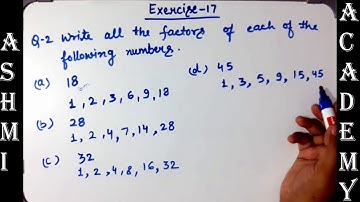 Exercise-17
Q-2 Write all the factors of each of the
following numbers.
(a) 18
1, 2, 3, 6, 9, 18
(b) 28
1, 2, 4, 7, 14, 28
(c) 32
1, 2, 4, 8, 16, 32
(d) 45
1, 3, 5, 9, 15, 45
ASHMI
ACADEMY